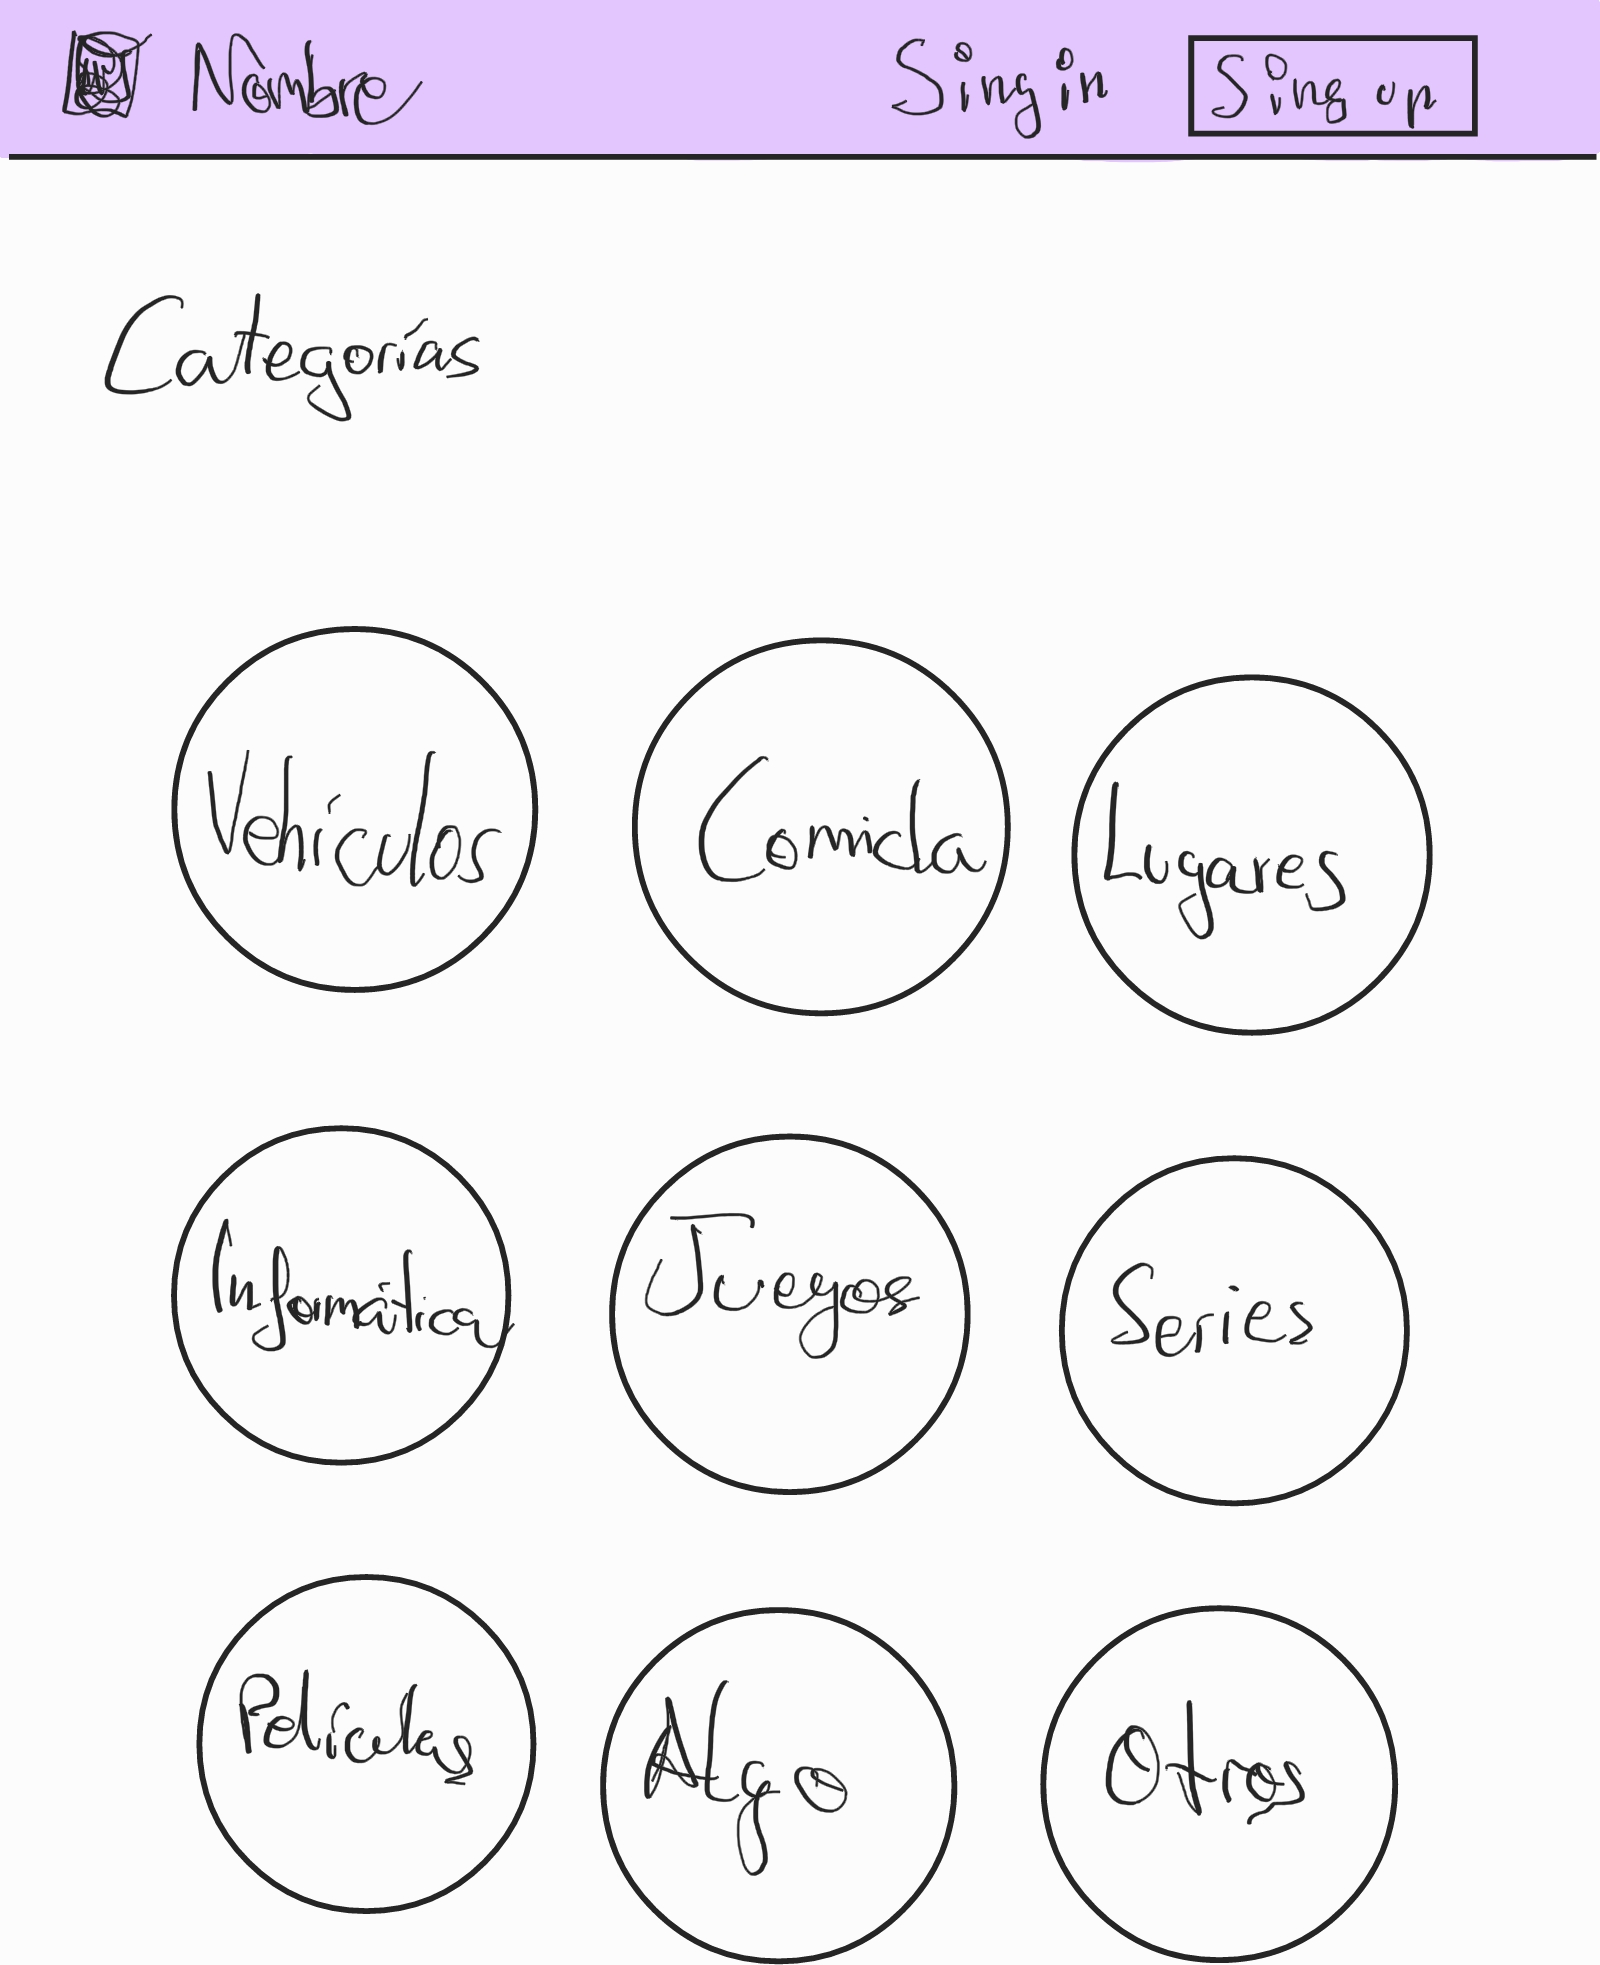 Nombre Sing in Sing up
Categorías
Vehículos Comida Lugares
Informática Juegos Series
Películas Algo Otros